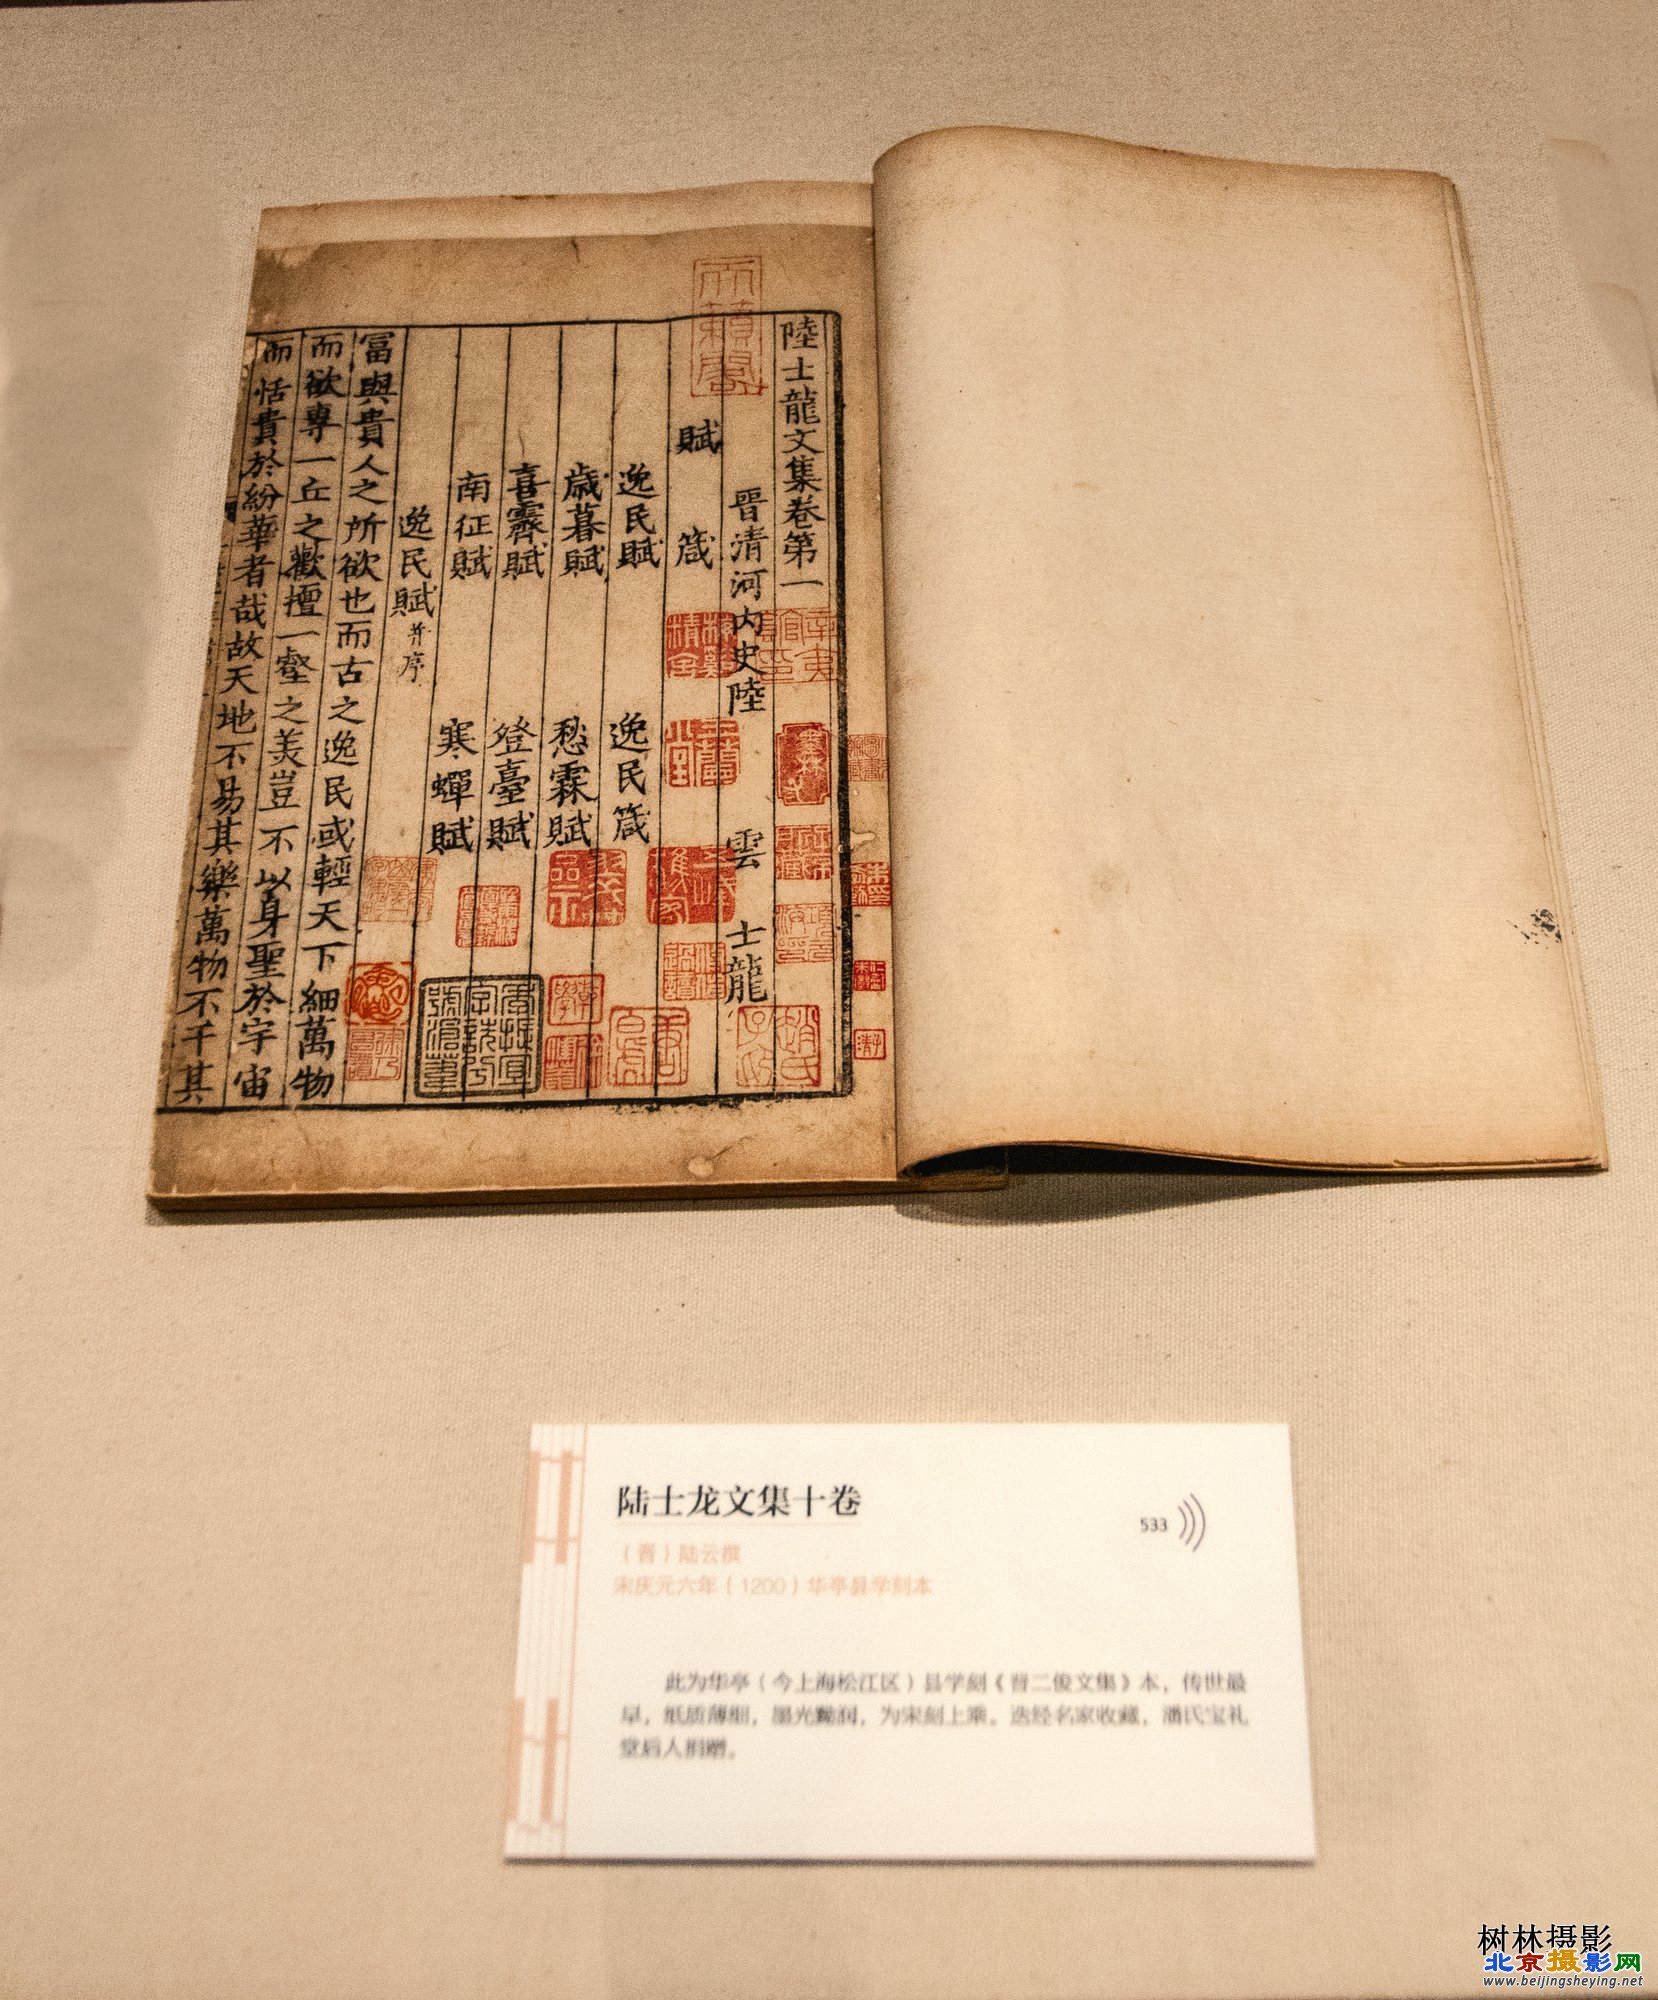 陸士龍文集卷第一
晉清河内史陸 雲 士龍
賦 箴
逸民賦 逸民箴
歳暮賦 愁霖賦
喜霽賦 登臺賦
南征賦 寒蟬賦
逸民賦并序
富與貴人之所欲也而古之逸民或輕天下細萬物
而欲專一丘之歡擅一壑之美豈不以身聖於宇宙
而恬貴於紛華者哉故天地不易其樂萬物不干其
天籟閣
陆士龙文集十卷
533
（晋）陆云撰
宋庆元六年（1200）华亭县学刻本
此为华亭（今上海松江区）县学刻《晋二俊文集》本，传世最
早，纸质薄细，墨光黝润，为宋刻上乘。迭经名家收藏，潘氏宝礼
堂后人捐赠。
树林摄影
北京摄影网
www.beijingsheying.net